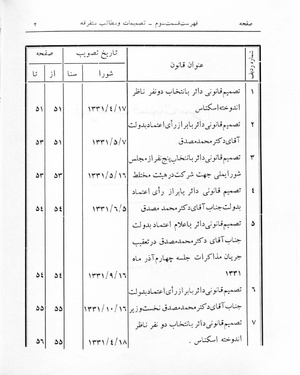 صفحه فهرست قسمت سوم - تصمیمات و مطالب متفرقه ۲
شماره ردیف عنوان قانون تاریخ تصویب صفحه
شورا سنا از تا
۱ تصمیم قانونی دائر بانتخاب دو نفر ناظر
اندوخته اسکناس ۱۳۳۱/۴/۱۷ ۵۱ ۵۱
۲ تصمیم قانونی دائر بابراز رأی اعتماد بدولت
آقای دکتر محمد مصدق ۱۳۳۱/۵/۷ ۵۱ ۵۳
۳ تصمیم قانونی دائر بانتخاب پنج نفر از مجلس
شورایملی جهت شرکت در هیئت مختلط ۱۳۳۱/۵/۱۶ ۵۳ ۵۳
۴ تصمیم قانونی دائر بابراز رأی اعتماد
بدولت جناب آقای دکتر محمد مصدق ۱۳۳۱/۶/۵ ۵۴ ۵۴
۵ تصمیم قانونی دائر باعلام اعتماد بدولت
جناب آقای دکتر محمد مصدق در تعقیب
جریان مذاکرات جلسه چهارم آذر ماه
۱۳۳۱ ۱۳۳۱/۹/۱۶ ۵۴ ۵۴
۶ تصمیم قانونی دائر بابراز رأی اعتماد بدولت
جناب آقای دکتر محمد مصدق نخست وزیر ۱۳۳۱/۱۰/۱۶ ۵۵ ۵۵
۷ تصمیم قانونی دائر بانتخاب دو نفر ناظر
اندوخته اسکناس . ۱۳۳۱/۴/۱۸ ۵۵ ۵۶